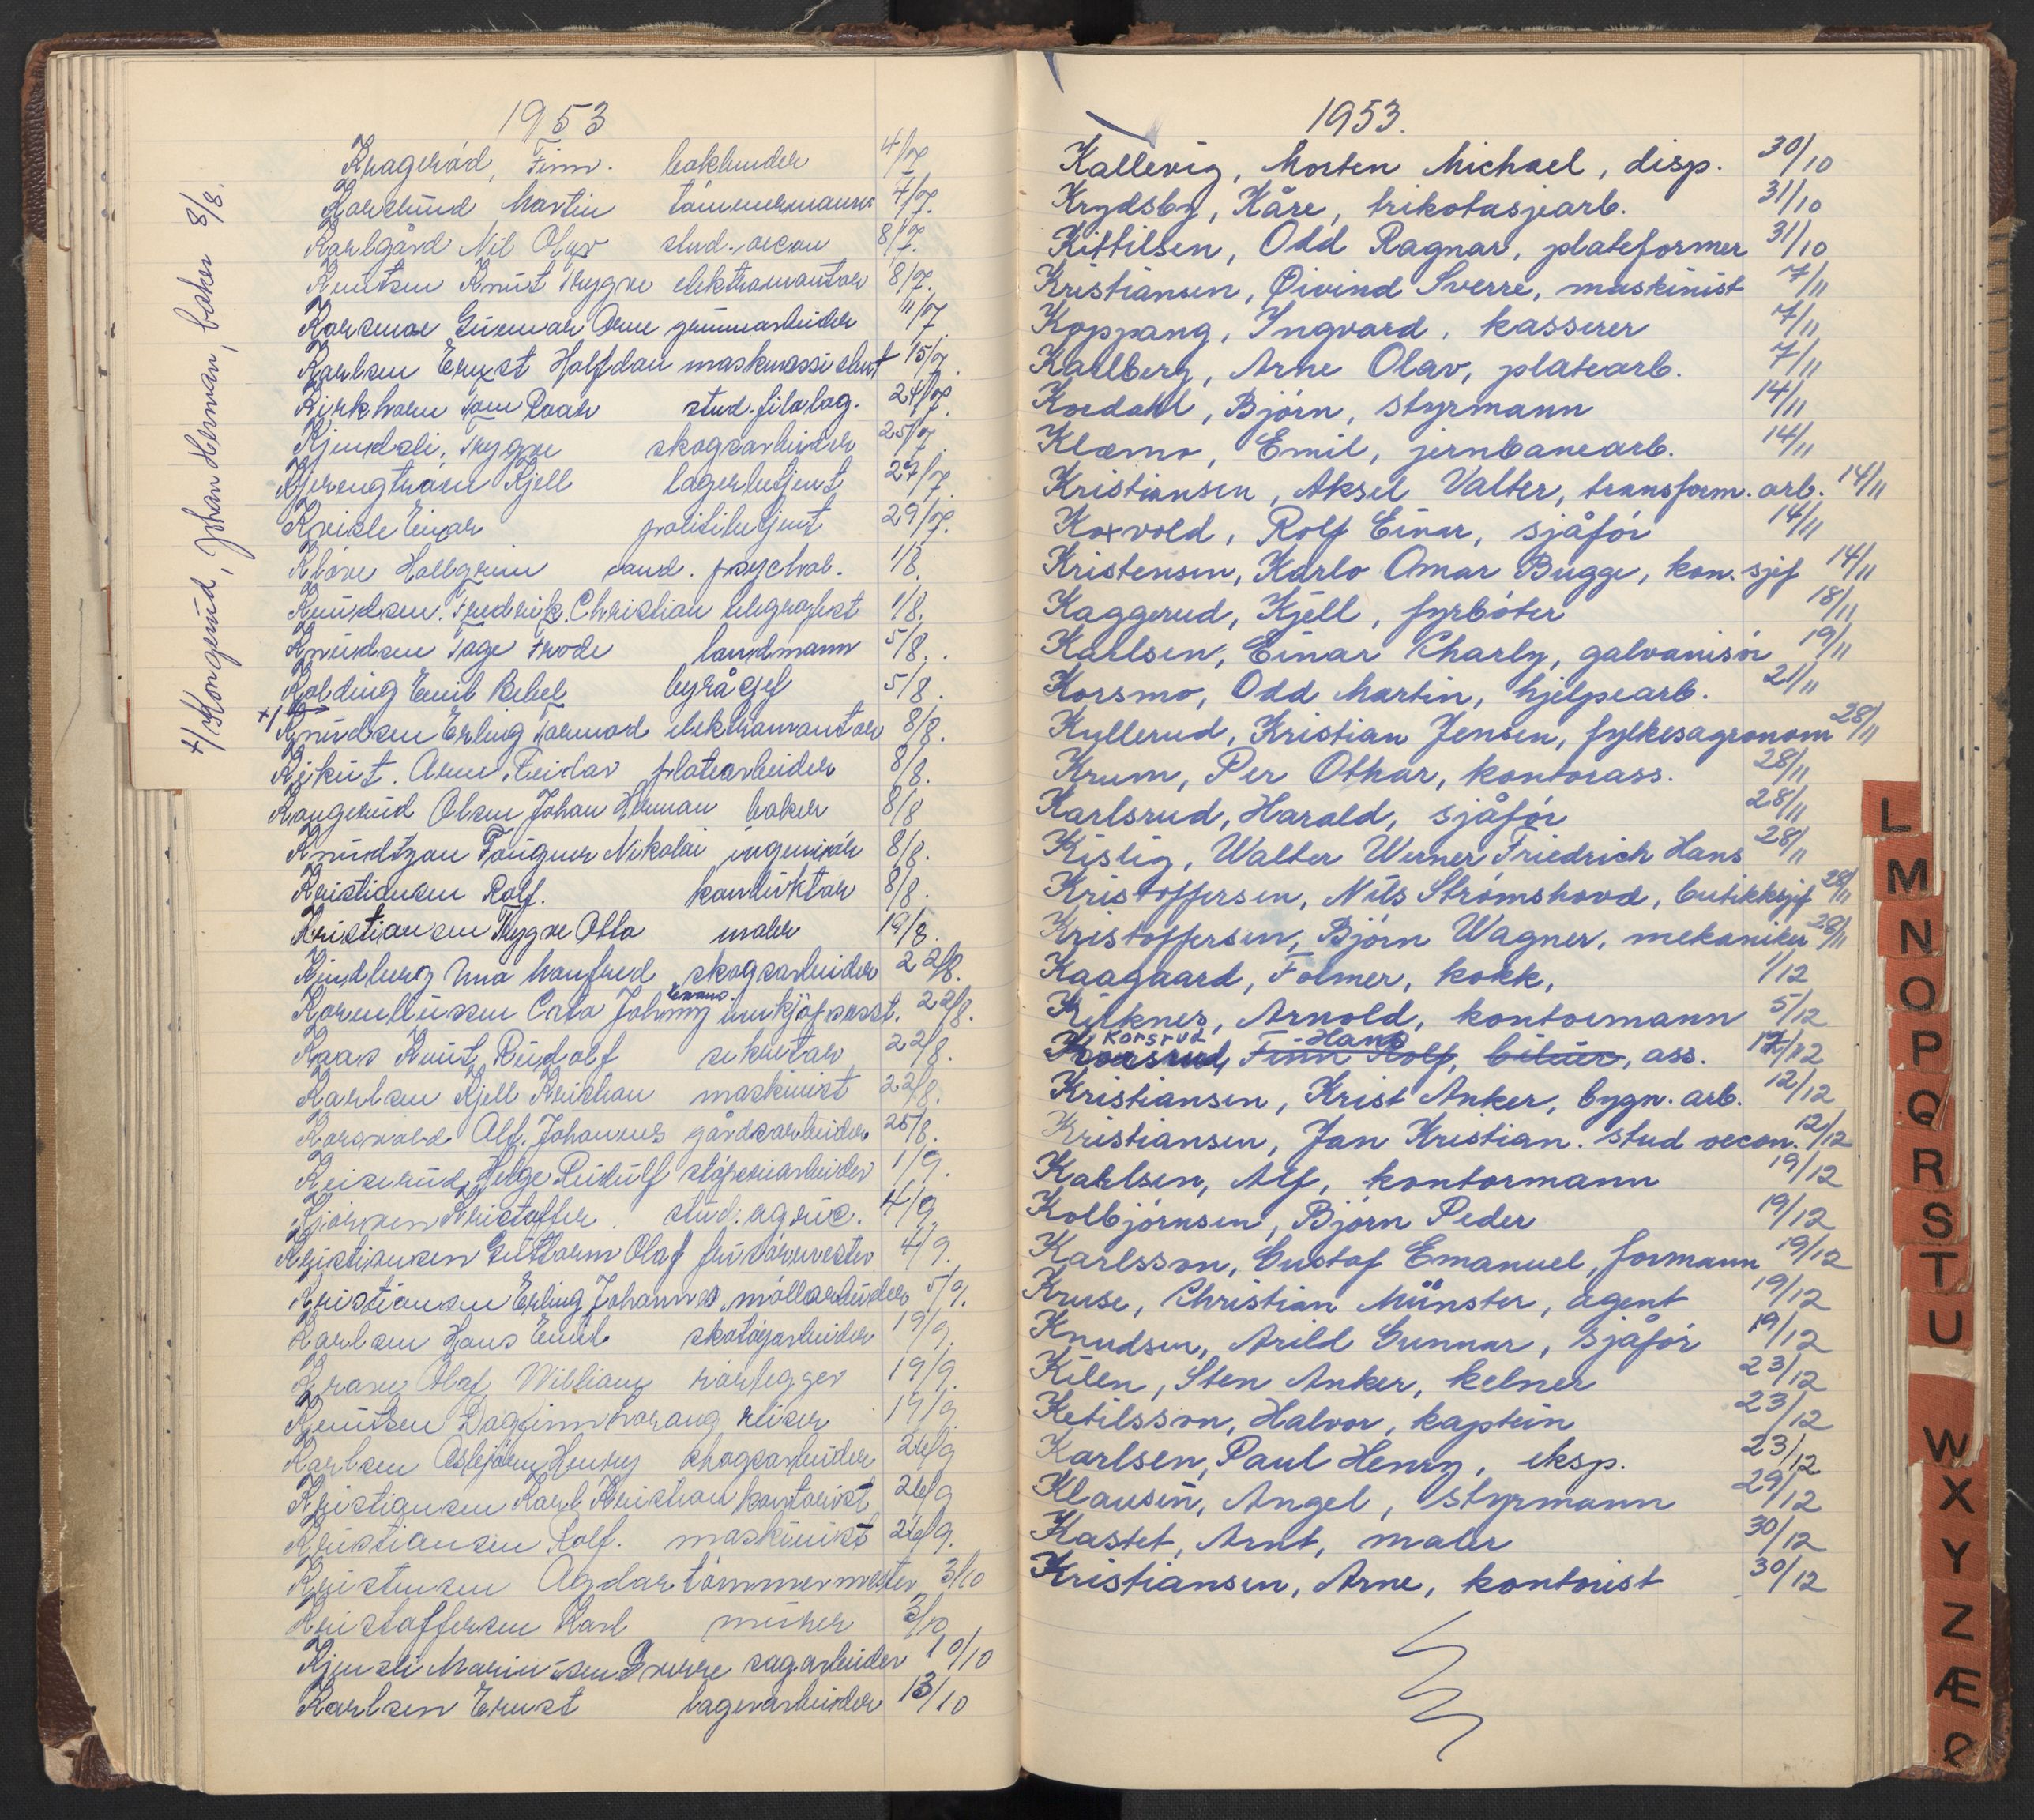 1953
Kragerød, Finn. bokbinder 4/7
Korslund Martin tømmermann 4/7.
Karlgård Nil Olav stud. oecon 8/7.
Knutsen Knut Trygve elektromontør 8/7.
Karsmoe Gunnar Arne grunnarbeider 11/7
Karlsen Ernst Halfdan maskinassistent 15/7.
Kirkhorn Tom Roar stud. filolog. 24/7.
Kjendsli, Trygve skogsarbeider 25/7.
Kjerengtrøen Kjell lagerbetjent 27/7.
Kvisle Einar politibetjent 29/7.
Kløve Hallgrim cand. psychol. 1/8.
Knudsen. Fredrik Christian telegrafist 1/8.
Knudsen Tage Frode landmann 5/8.
Kolding Emil Bebel byråsjef 5/8.
+/ Knudsen Erling Tormod elektromontør 8/8.
Kjekut. Arne Reidar platearbeider 8/8.
Kongerud Olsen Johan Herman baker 8/8
Knudtzon Fougner Nikolai ingeniør 8/8.
Kristiansen Rolf. konduktør 8/8.
Kristiansen Trygve Otto maler 19/8.
Kindberg Uno Manfred skogsarbeider 22/8.
Evans.
Korenliusen Cato Johnny innkjøpsasst. 22/8.
Kaas Knut Rudolf sekretær 22/8.
Karlsen Kjell Kristian maskinist 22/8.
Korsvold Alf. Johannes gårdsarbeider 25/8.
Keiserud, Helge Rudulf støperiarbeider 1/9.
Kjörven Kristoffer. stud. agric. 4/9
Kristiansen Guttorm Olaf frisørmester 4/9.
Kristiansen Erling Johannes møllarbeider 5/9.
Karlsen Hans Emil skotøyarbeider 19/9.
Krane Olaf William rørlegger 19/9.
Knutsen Dagfinn Morang reiser 19/9.
Karlsen Asbjørn Henry skogsarbeider 26/9
Kristiansen Karl Kristian kontorist 26/9
Kristiansen Rolf. maskinist 26/9.
Kristensen Agdar tømmermester 3/10
Kristoffersen Karl murer 3/10
Kjensli Marinusen Sverre sagarbeider 10/10
Karlsen Ernst lagerarbeider 13/10
+/ Kongerud, Johan Herman, baker 8/8.
1953.
Kallevig, Morten Michael, disp. 30/10
Krydsby, Kåre, trikotasjearb. 31/10
Kittilsen, Odd Ragnar, plateformer 31/10
Kristiansen, Øivind Sverre, maskinist 7/11
Koppang, Ingvard, kasserer 7/11
Karlberg, Arne Olav, platearb. 7/11
Kordahl, Bjørn, styrmann 14/11
Klæmo, Emil, jernbanearb. 14/11
Kristiansen, Aksel Valter, transform. arb. 14/11
Koxvold, Rolf Einar, sjåfør 14/11
Kristensen, Karlo Omar Bugge, kon. sjef 14/11
Kaggerud, Kjell, fyrbøter 18/11
Karlsen, Einar Charly, galvanisør 19/11
Korsmo, Odd Martin, hjelpearb. 21/11
Kyllerud, Kristian Jensen, fylkesagronom 28/11
Krum, Per Othar, kontorass. 28/11
Karlsrud, Harald, sjåfør 28/11
Kislig, Walter Werner Friedrich Hans 28/11
Kristoffersen, Nils Strømshovd, butikksjef 28/11
Kristoffersen, Bjørn Wagner, mekaniker 28/11
Kaagaard, Folmer, kokk, 1/12
Kirknes, Arnold, kontormann 5/12
Korsrud Hans
Korsrud, Finn Rolf, bilair, ass. 12/12
Kristiansen, Krist Anker, bygn. arb. 12/12
Kristiansen, Jan Kristian. stud oecon. 12/12
Karlsen, Alf, kontormann 19/12
Kolbjørnsen, Bjørn Peder 19/12
Karlsson, Gustof Emanuel, formann 19/12
Kruse, Christian Münster, agent 19/12
Knudsen, Arild Gunnar, sjåfør 19/12
Kilen, Sten Anker, kelner 23/12
Ketilsson, Halvor, kaptein 23/12
Karlsen, Paul Henry, eksp. 23/12
Klausen, Angel, styrmann 29/12
Kastet, Arnt, maler 30/12
Kristiansen, Arne, kontorist 30/12
L
M
N
O
P
Q
R
S
T
U
W
X
Y
Z
Æ